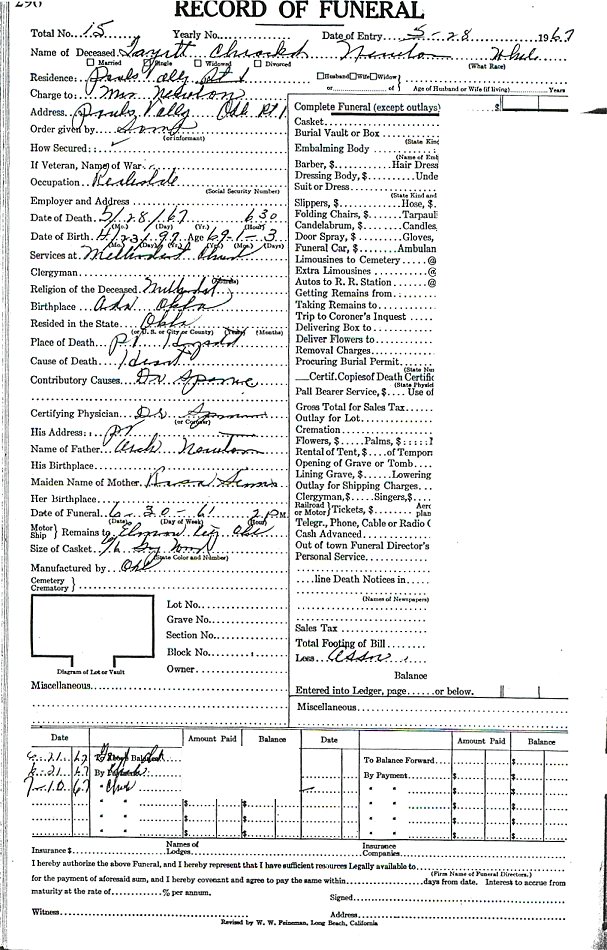 290
RECORD OF FUNERAL
Total No. 15 Yearly No. Date of Entry 5-28 1967
Name of Deceased Newton
Married Single Widowed Divorced (What Race)
Residence: Pauls Vally Rt 1 Husband Wife Widow
or of Age of Husband or Wife (if living) Years
Charge to: Mrs Newton
Address Pauls Vally Okla Rt 1
Order given by
(or informant)
How Secured:
If Veteran, Name of War
Occupation
(Social Security Number)
Employer and Address
Date of Death 5/28/67 630
(Mo.) (Day) (Yr.) (Hour)
Date of Birth 4/23/97 Age 69-1-3
(Mo.) (Day) (Yr.) (Yrs.) (Mos.) (Days)
Services at Church
Clergyman
Religion of the Deceased
Birthplace Ada Okla
Resided in the State Okla
(or U. S. or City or County) (Years) (Months)
Place of Death P.V. Hospital
Cause of Death Heart
Contributory Causes Dr
Certifying Physician Dr
(or Coroner)
His Address: PV
Name of Father Arch Newton
His Birthplace
Maiden Name of Mother
Her Birthplace
Date of Funeral 6-30-61 2 P.M.
(Date) (Day of Week) (Hour)
Motor Ship } Remains to Okla
Size of Casket
(State Color and Number)
Manufactured by Okla
Cemetery Crematory }
Lot No.
Grave No.
Section No.
Block No.
Owner
Diagram of Lot or Vault
Miscellaneous
Complete Funeral (except outlays) $
Casket
Burial Vault or Box
(State Kind
Embalming Body
(Name of Emb
Barber, $ Hair Dress
Dressing Body, $ Unde
Suit or Dress
(State Kind and
Slippers, $ Hose, $
Folding Chairs, $ Tarpaul
Candelabrum, $ Candles,
Door Spray, $ Gloves,
Funeral Car, $ Ambulan
Limousines to Cemetery @
Extra Limousines @
Autos to R. R. Station @
Getting Remains from
Taking Remains to
Trip to Coroner's Inquest
Delivering Box to
Deliver Flowers to
Removal Charges
Procuring Burial Permit
(State Nu
Certif. Copies of Death Certific
(State Physici
Pall Bearer Service, $ Use of
Gross Total for Sales Tax
Outlay for Lot
Cremation
Flowers, $ Palms, $
Rental of Tent, $ of Tempor
Opening of Grave or Tomb
Lining Grave, $ Lowering
Outlay for Shipping Charges
Clergyman, $ Singers, $
Railroad or Motor } Tickets, $ Aero plan
Telegr., Phone, Cable or Radio C
Cash Advanced
Out of town Funeral Director's
Personal Service
line Death Notices in
(Names of Newspapers)
Sales Tax
Total Footing of Bill
Less Assn
Balance
Entered into Ledger, page or below.
Miscellaneous
Date Amount Paid Balance Date Amount Paid Balance
6 21 67 To Above Balance To Balance Forward $
6 21 67 By Payment By Payment $ $
7-10 67 " " " " $ $
" " $ $ " " $ $
" " $ $ " " $ $
" " $ $ " " $ $
Insurance $ Names of Lodges Insurance Companies
I hereby authorize the above Funeral, and I hereby represent that I have sufficient resources Legally available to
(Firm Name of Funeral Directors.)
for the payment of aforesaid sum, and I hereby covenant and agree to pay the same within days from date. Interest to accrue from
maturity at the rate of % per annum.
Signed
Witness Address
Revised by W. W. Feineman, Long Beach, California